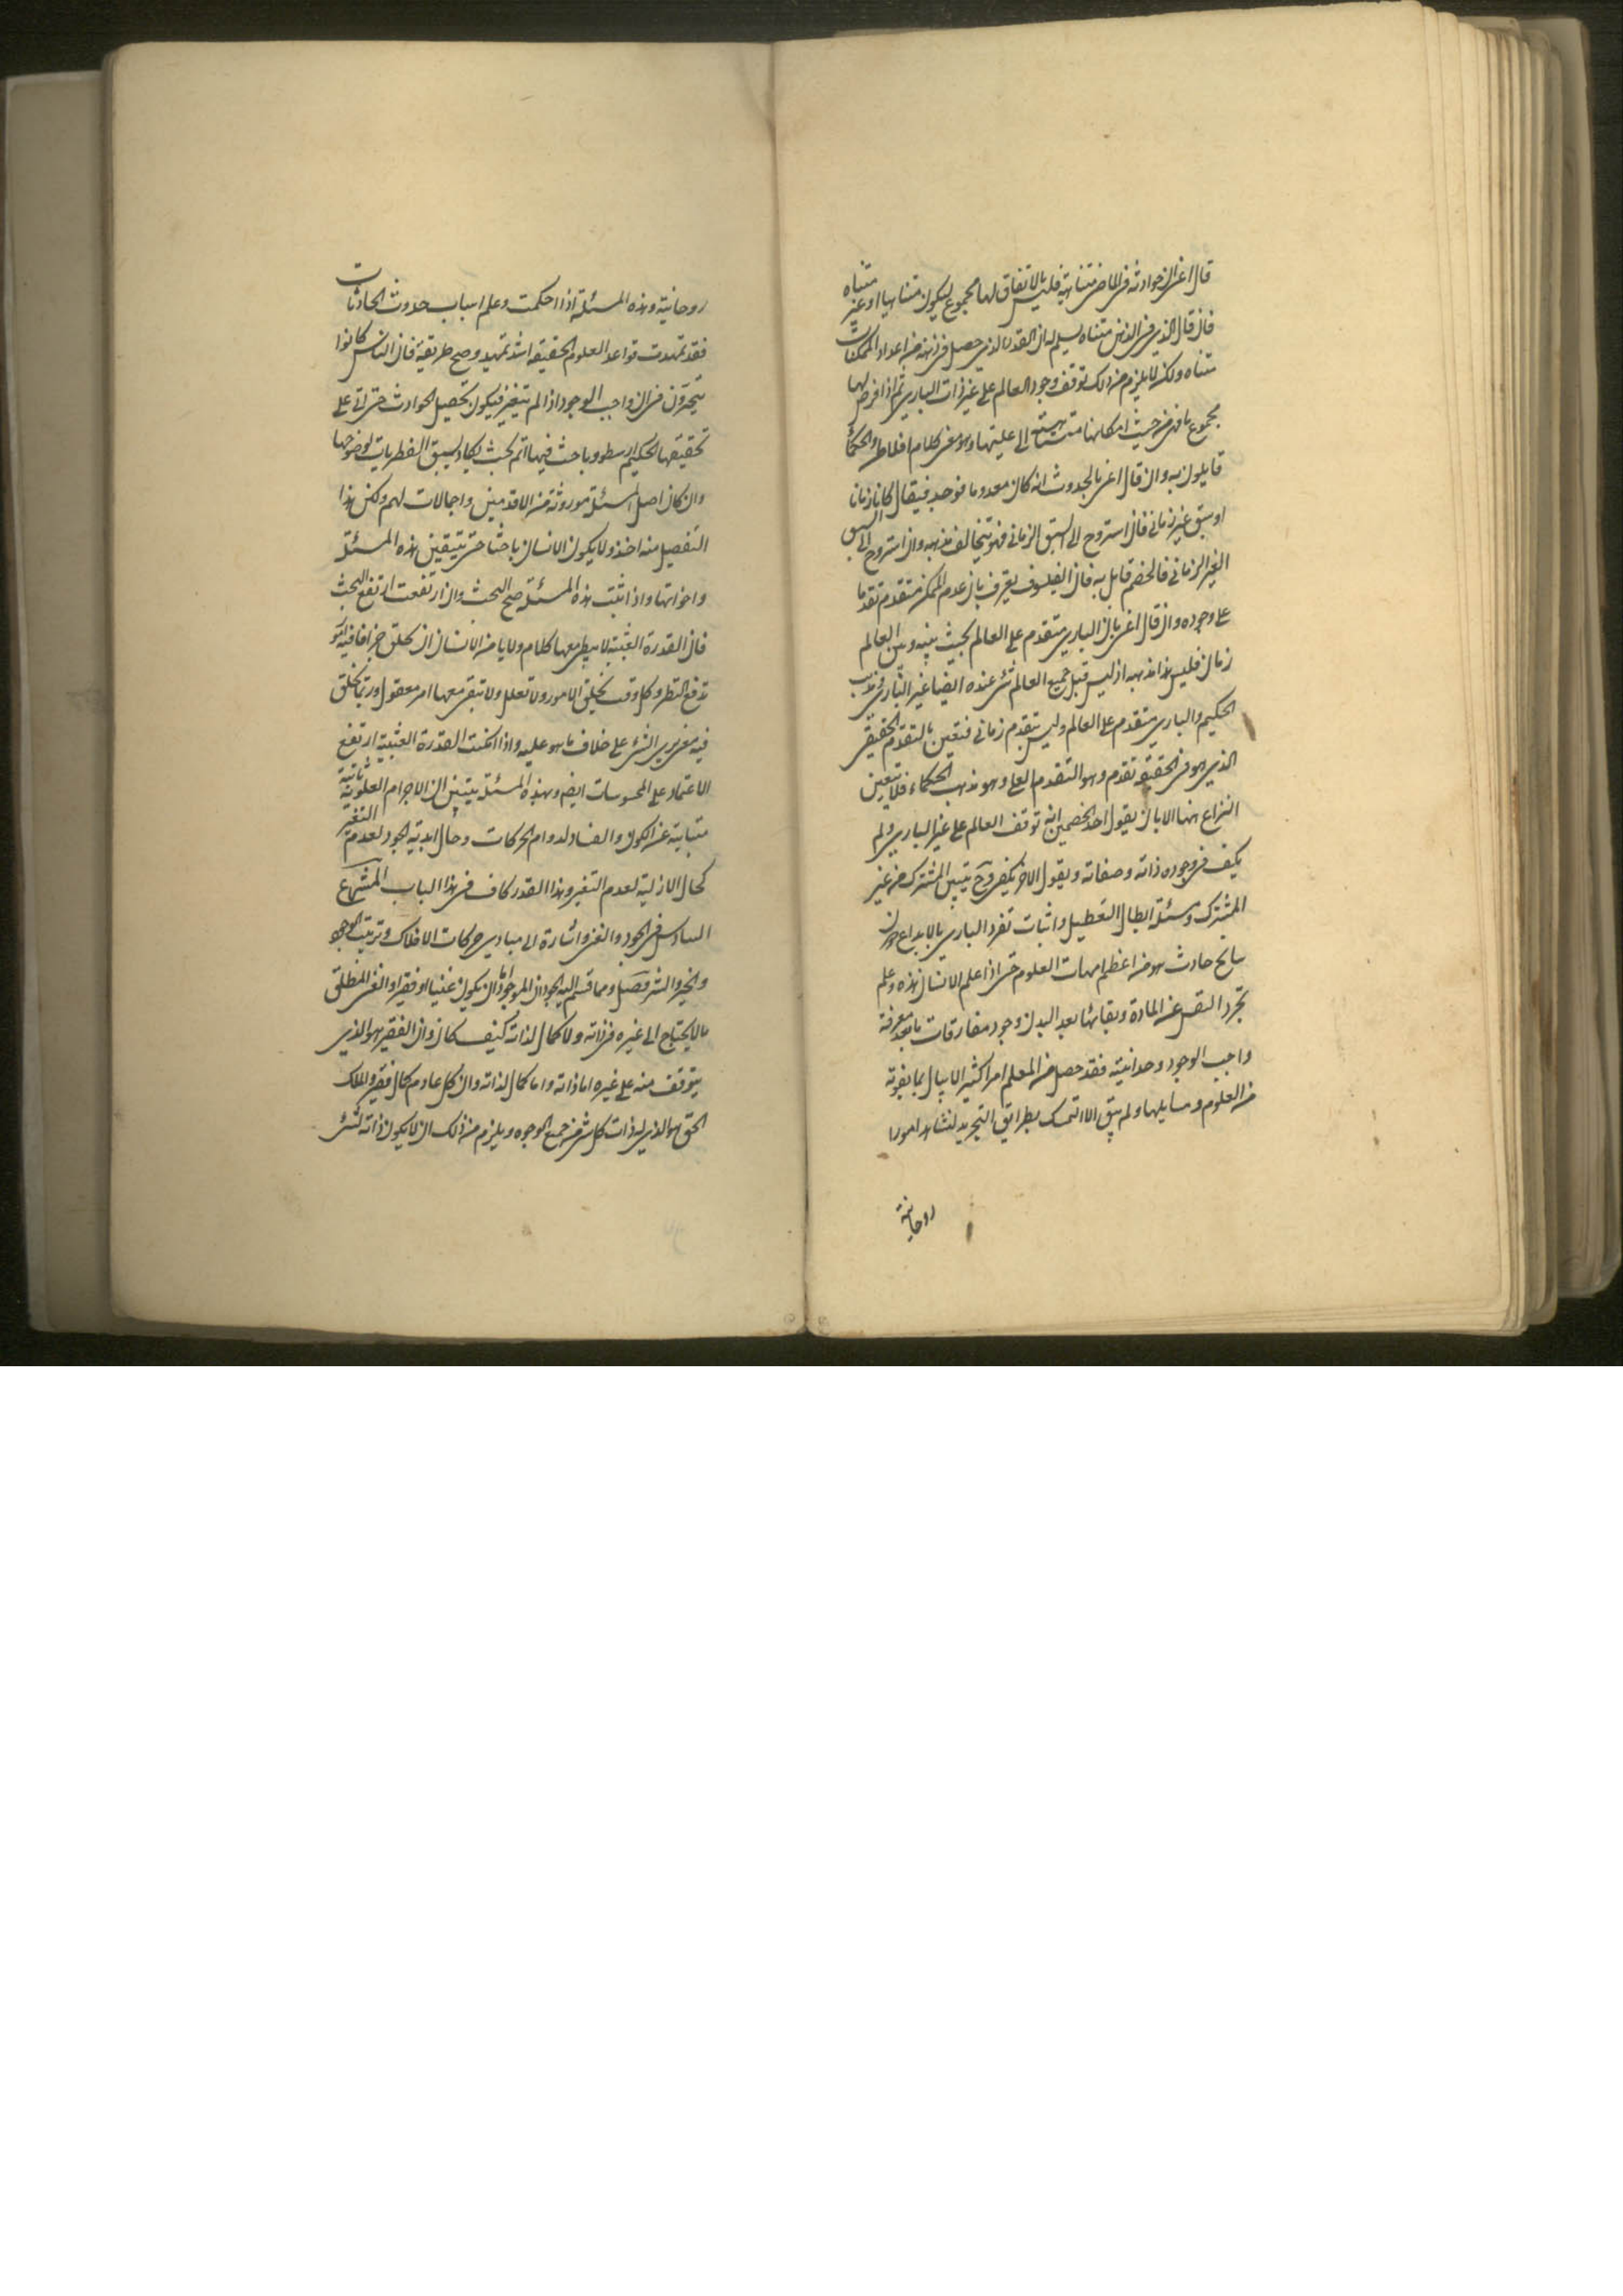 قال اعنى ان حوادثه فى الماضى متناهية فليس بالاتفاق لها مجموع ليكون متناهيا او غير متناه
فان قال الذى فى الذهن متناه يسلم له ان القدر الذى حصل فى ذهنه من اعداد الممكنات
متناه ولكن لا يلزم من ذلك توقف وجود العالم على غير ذات البارى ثم اذا فرض لها
مجموع ما فهى من حيث امكانها متناهية الى عليتها وهو معنى كلام افلاطن والحكما
قايلون به وان قال اعنى بالحدوث انه كان معدوما فوجد فيقال كان زمانا
او سبق غير زمانى فان استروح الى السبق الزمانى فهو يخالف مذهبه وان استروح الى السبق
الغير الزمانى فالخصم قايل به فان الفيلسوف يعترف بان عدم الممكن متقدم تقدما
على وجوده وان قال اعنى بان البارى متقدم على العالم بحيث بينه وبين العالم
زمان فليس هذا مذهبه اذ ليس قبل جميع العالم شئ عنده ايضا غير البارى
الحكيم والبارى متقدم على العالم وليس بتقدم زمانى فتعين بالتقدم الحقيقى
الذى هو فى الحقيقة تقدم وهو التقدم العلى وهو مذهب الحكماء فلا يتعين
النزاع ههنا الا بان يقول احد الخصمين انه توقف العالم على غير البارى ولم
يكف فى وجوده ذاته وصفاته ويقول الاخر يكفى وح يتبين المشرك من غير
المشرك ومسئلة ابطال التعطيل واثبات تفرد البارى بالابداع دون
سانح حادث هو من اعظم امهات العلوم حتى اذا علم الانسان هذه وعلم
تجرد النفس عن المادة وبقائها بعد البدن وجود مفارقات ما بعد معرفة
واجب الوجود وحدانيته فقد حصل من العلم امرا كثيرا لا يبال بما يفوته
من العلوم ومسايلها ولم يبق الا التمسك بطرايق التجريد لنشاهد امورا
روحانية
روحانية وهذه المسئلة اذا احكمت وعلم اسباب حدوث الحادثات
فقد تمهدت قواعد العلوم الحقيقة اشد تمهيد وصح طريقية فان الناس كانوا
يتحيرون فى ان واجب الوجود اذا لم يتغير فيكون تحصيل الحوادث حتى اتى على
تحقيقها الحكيم ارسطو وباحث فيها اتم بحث يكاد يسبق الفطريات لوضوحها
وان كان اصل المسئلة موروثة من الاقدمين واجمالات لهم ولكن هذا
التفصيل منه اخذ ولا يكون الانسان باحثا حتى يتيقن هذه المسئلة
واخواتها واذا ثبت هذه المسئلة صح البحث وان ارتفعت ارتفع البحث
فان القدرة العبثية لا يبطل معها كلام ولا يامن الانسان ان يخلق جزافا فيه امور
تدفع النظر وكل وقت يخلق الامور ولا تعلل ولا تبقى معها امر معقول وربما يخلق
فيه معنى يرى الشئ على خلاف ما هو عليه واذا امكنت القدرة العبثية ارتفع
الاعتماد على المحسوسات ايضا وبهذه المسئلة يتبين ان الاجرام العلوية ثابتة
متباينة عن الكون والفساد لدوام الحركات وحال ابدية الجود لعدم التغير
كحال الازلية لعدم التغير وهذا القدر كاف فى هذا الباب المشرع
السادس فى الجود والغنى واشارة الى مبادى حركات الافلاك وترتيب الوجود
والخير والشر فصل ومما قسم اليه الوجود ان الموجود اما ان يكون غنيا او فقيرا والغنى المطلق
ما لا يحتاج الى غيره فى ذاته ولا كمال لذاته كيف كان وان الفقير هو الذى
يتوقف منه على غيره اما ذاته واما كمال لذاته وان كل عادم كمال فقير والملك
الحق هو الذى له ذات كل شئ من جميع الوجوه ويلزم من ذلك ان لا يكون ذاته لشئ